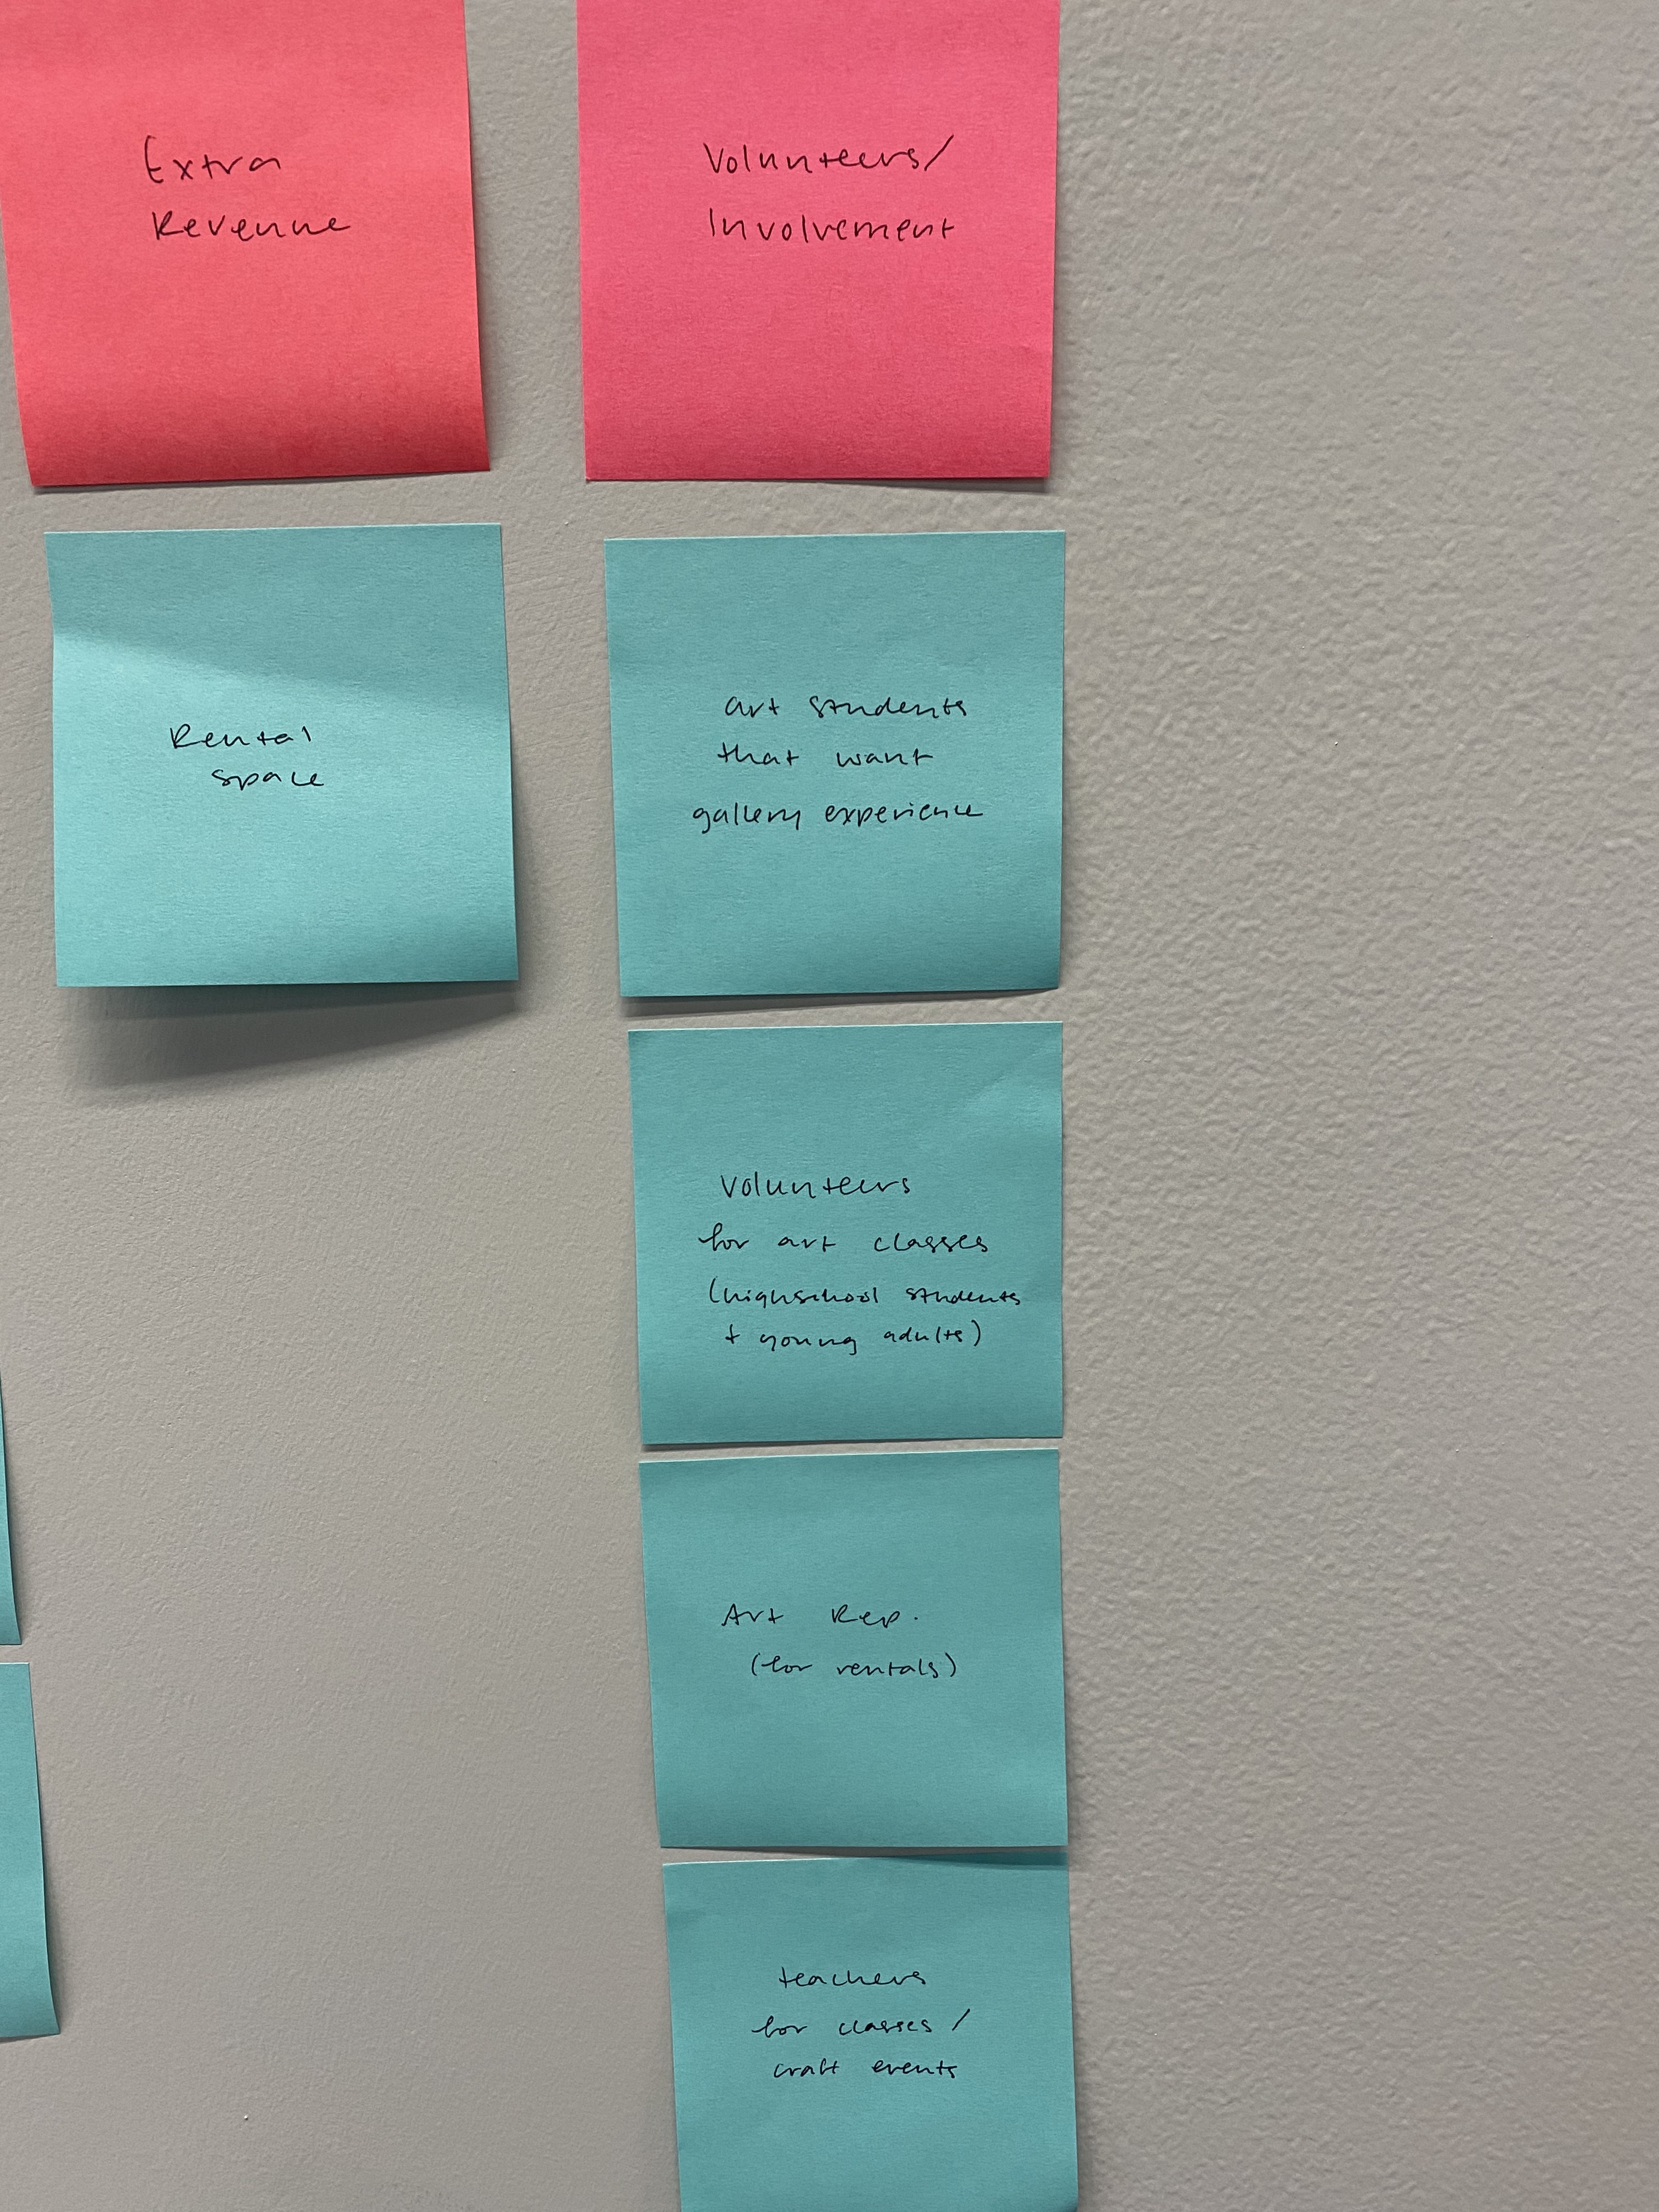 Extra
Revenue
Volunteers/
Involvement
Rental
space
art students
that want
gallery experience
Volunteers
for art classes
(highschool students
+ young adults)
Art Rep.
(for rentals)
teachers
for classes/
craft events